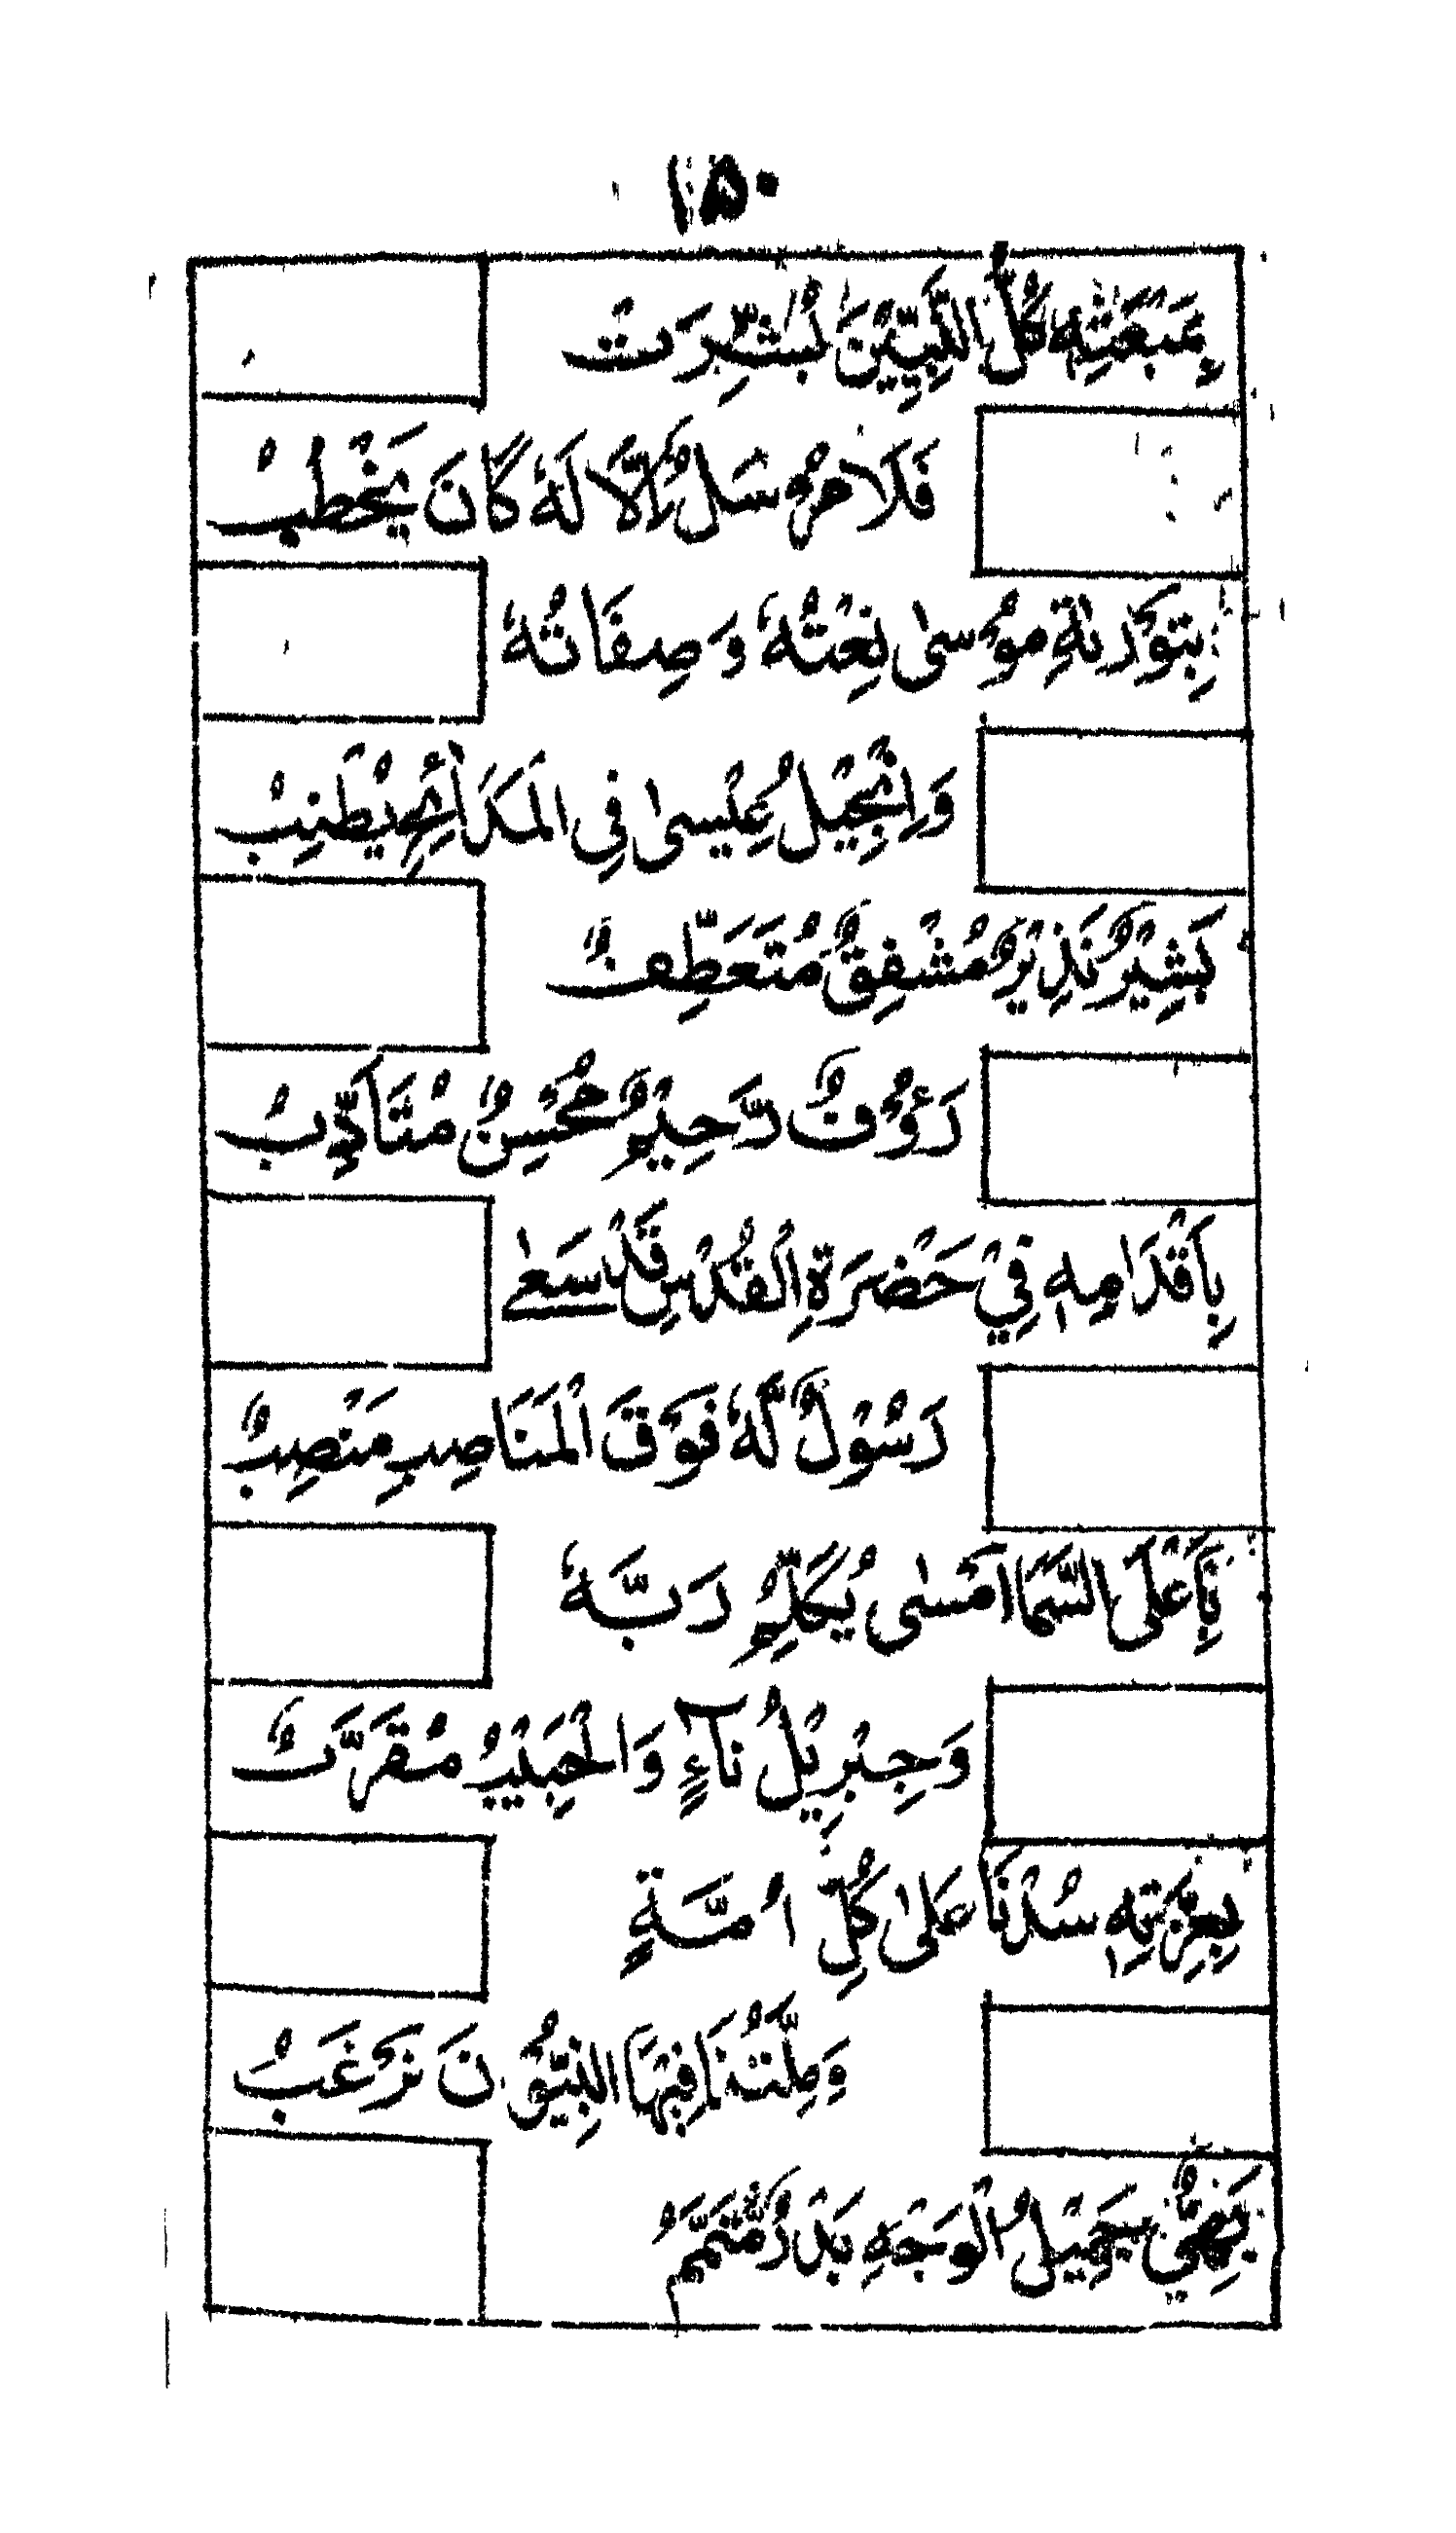 ١٥٠
بِمَبْعَثِهٖ كُلُّ النَّبِيِّيْنَ بُشِّرَتْ
فَلَا مُرْسَلٌ إِلَّا لَهٗ كَانَ يَخْطُبُ
بِتَوْرٰىةِ مُوْسٰى نِعْتُهٗ وَصِفَاتُهٗ
وَاِنْجِيْلُ عِيْسٰى فِى الْمَدَائِحِ يُطْنِبُ
بَشِيْرٌ نَذِيْرٌ مُشْفِقٌ مُتَعَطِّفٌ
رَءُوْفٌ رَّحِيْمٌ مُحْسِنٌ مُتَأَدِّبُ
بِاَقْدَامِهٖ فِيْ حَضْرَةِ الْقُدْسِ قَدْ سَعٰے
رَسُوْلٌ لَّهٗ فَوْقَ الْمَنَاصِبِ مَنْصِبٌ
بِأَعْلَى السَّمَا اَمْسٰى يُكَلِّمُ رَبَّهٗ
وَجِبْرِيْلُ نَآءٍ وَالْحَبِيْبُ مُقَرَّبٌ
بِعِزَّتِهٖ سُدْنَا عَلٰى كُلِّ اُمَّةٍ
وَمِلَّتُنَا فِيْهَا النَّبِيُّوْنَ تَرْغَبُ
بَهِيٌّ جَمِيْلُ الْوَجْهِ بَدْرٌ مُّتَمَّمٌ